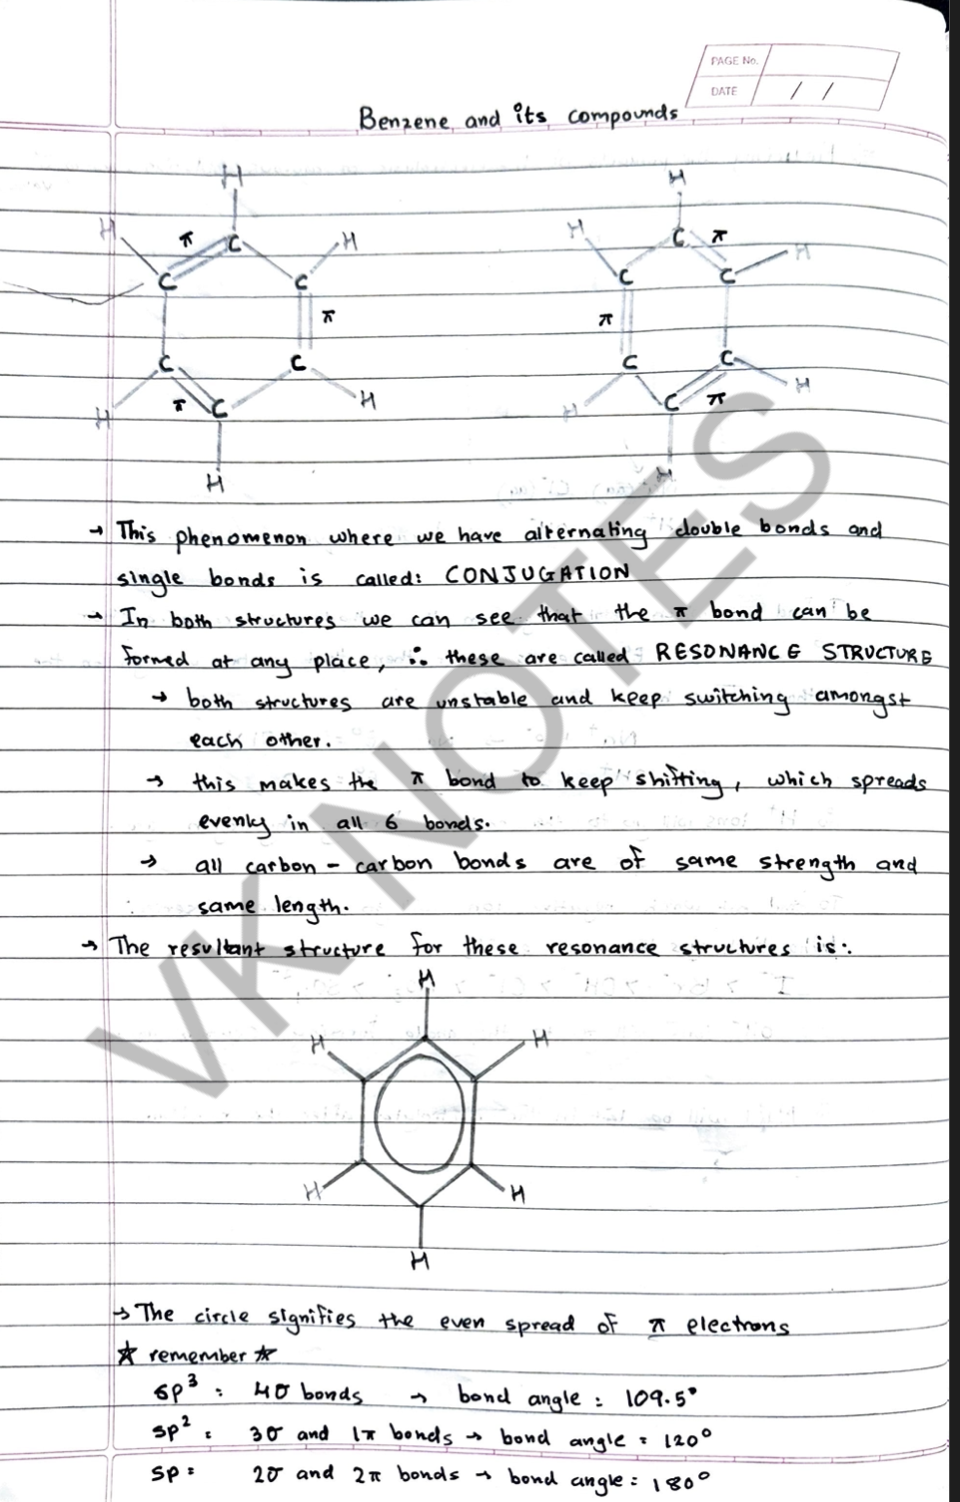 PAGE No.
DATE / /
Benzene and its compounds
H H
H π C H H C π H
C C C C
π π
C C C C
H π C H H C π H
H H
→ This phenomenon where we have alternating double bonds and
single bonds is called: CONJUGATION
→ In both structures we can see that the π bond can be
formed at any place, ∴ these are called RESONANCE STRUCTURE
→ both structures are unstable and keep switching amongst
each other.
→ this makes the π bond to keep shifting, which spreads
evenly in all 6 bonds.
→ all carbon - carbon bonds are of same strength and
same length.
→ The resultant structure for these resonance structures is:
H
H H
H H
H
→ The circle signifies the even spread of π electrons
☆ remember ☆
sp³ : 4σ bonds → bond angle : 109.5°
sp² : 3σ and 1π bonds → bond angle = 120°
sp : 2σ and 2π bonds → bond angle = 180°
VK NOTES